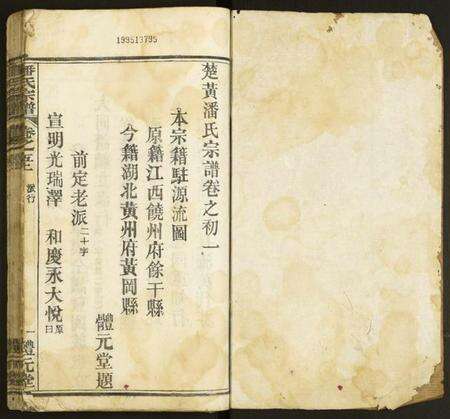 199513795
楚黃潘氏宗譜卷之初一
本宗籍駐源流圖
原籍江西饒州府餘干縣
今籍湖北黃州府黃岡縣
體元堂題
前定老派二十字
宣明光瑞澤 和慶永大悅
潘氏宗譜
卷之
一 體元堂